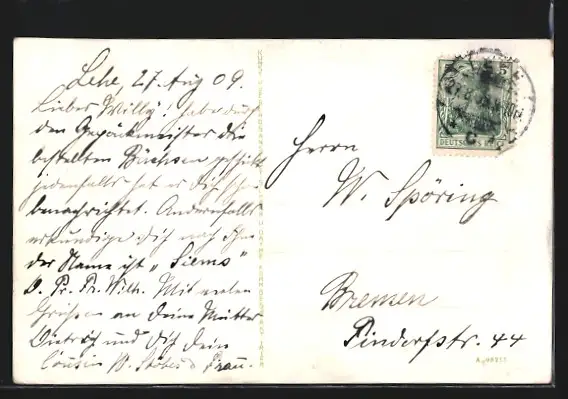 Lehe, 27. Aug 09.
Lieber Willy! habe durch
den Gepäckmeister die
bestellten Büchsen geschickt
jedenfalls hat er Dich schon
benachrichtet. Andernfalls
erkundige Dich nach Ihm
der Name ist „Siems"
D. Pr. Fr. Wilh. Mit vielen
Grüssen an Deine Mutter
Dietrich und Dich Dein
Cousin u. Frau.
Herrn
W. Spöring
Bremen
44
DEUTSCHES REICH
5